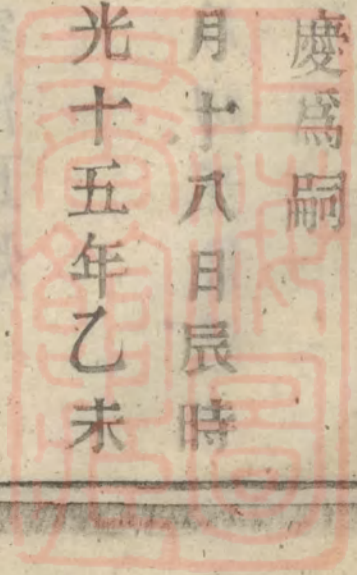 慶爲嗣
月十八日辰時
光十五年乙未